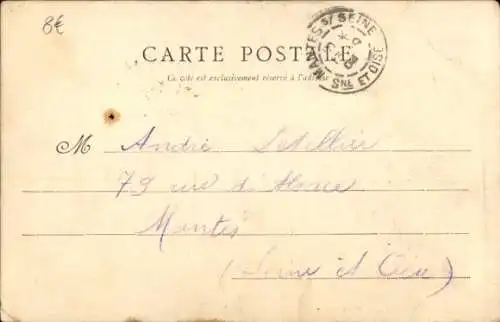 8€
MANTES S/ SEINE
SNE ET OISE
CARTE POSTALE
Ce côté est exclusivement réservé à l'adresse
M André Letellier
79 rue d
Mantes
(Seine et Oise)